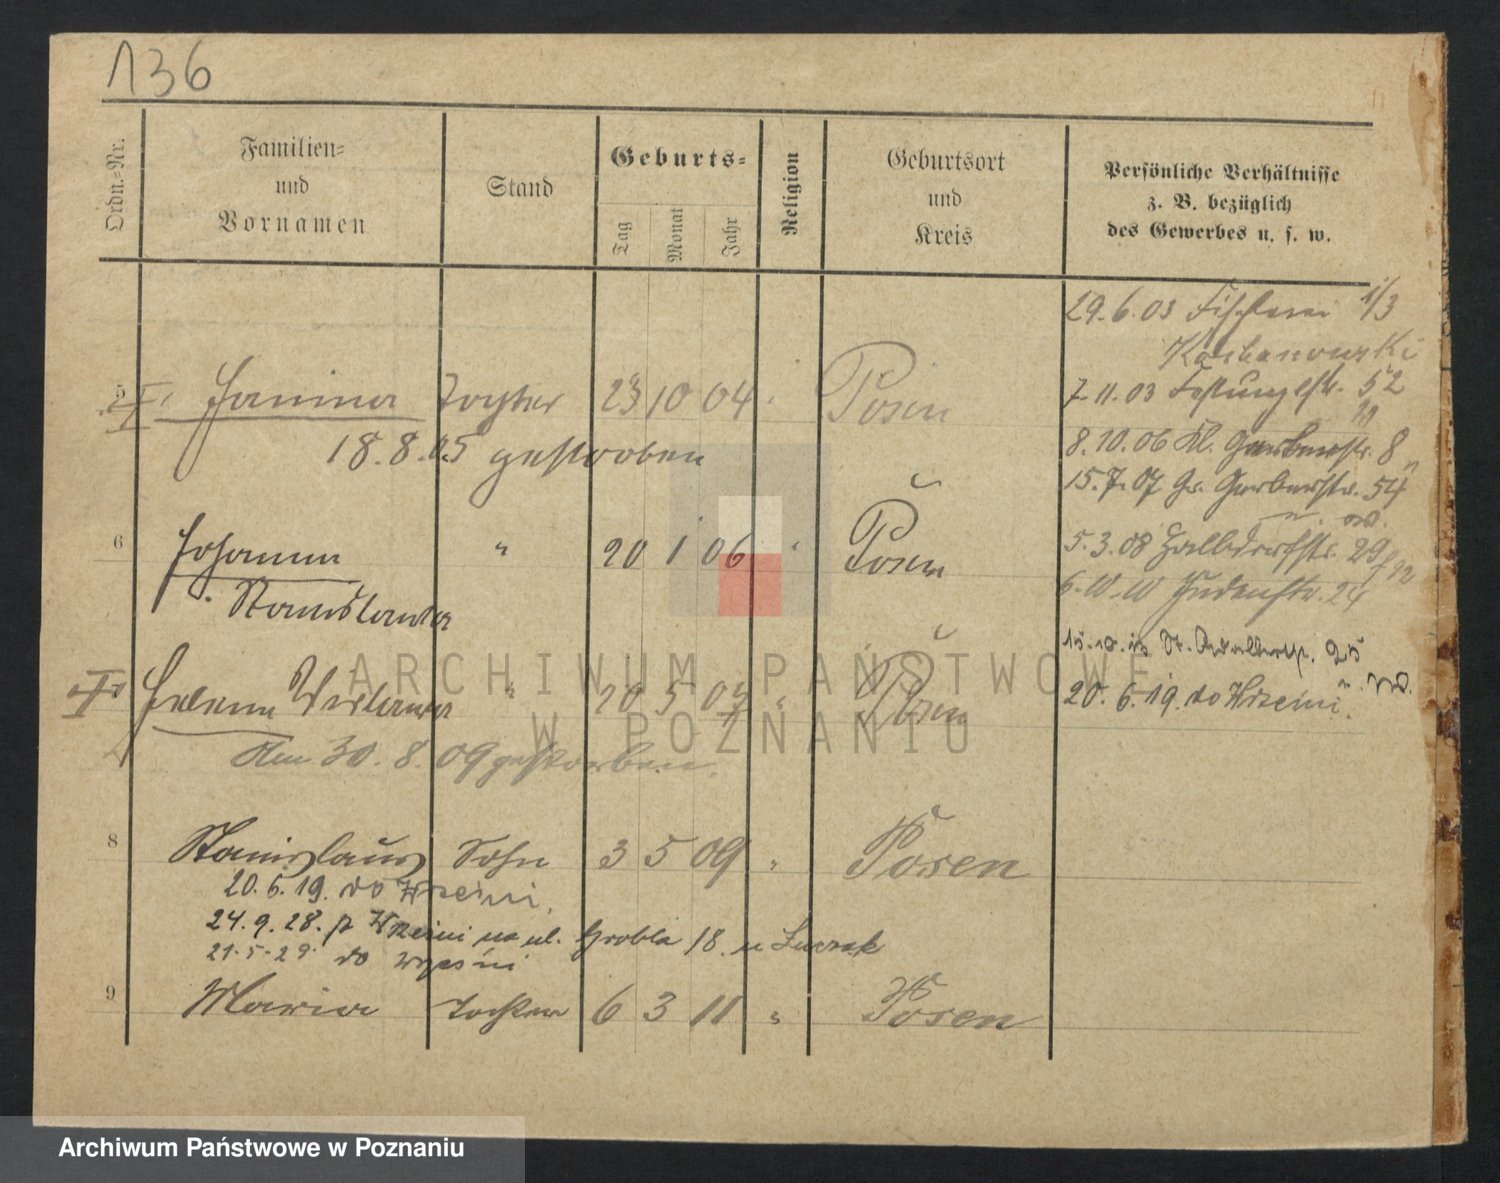 136
Ordn.-Nr.
Familien-
und
Vornamen
Stand
Geburts-
Tag
Monat
Jahr
Religion
Geburtsort
und
Kreis
Persönliche Verhältnisse
z. B. bezüglich
des Gewerbes u. s. w.
29.6.03 Fischerei 1/3
5 Janina Tochter 23 10 04 Posen
7.11.03 Festungsstr. 52
18.8.05 gestorben
8.10.06 Kl. Gerberstr. 8
15.7.07 Gr. Gerberstr. 54
6 Johanna " 20 1 06 " Posen
5.3.08 Halbdorfstr. 29
Stanislawa
6.10.10 Judenstr. 24
St. Adalbertstr. 25
Helena " 20 5 07 " Posen
20.6.19. do Wrześni.
Am 30.8.09 gestorben.
8 Stanislaus Sohn 3 5 09 " Posen
20.6.19. do Wrześni.
24.9.28. z Wrześni na ul. Grobla 18. u Luczak
21.5.29 do Wrześni
9 Maria Tochter 6 3 11 " Posen
ARCHIWUM PAŃSTWOWE
W POZNANIU
Archiwum Państwowe w Poznaniu